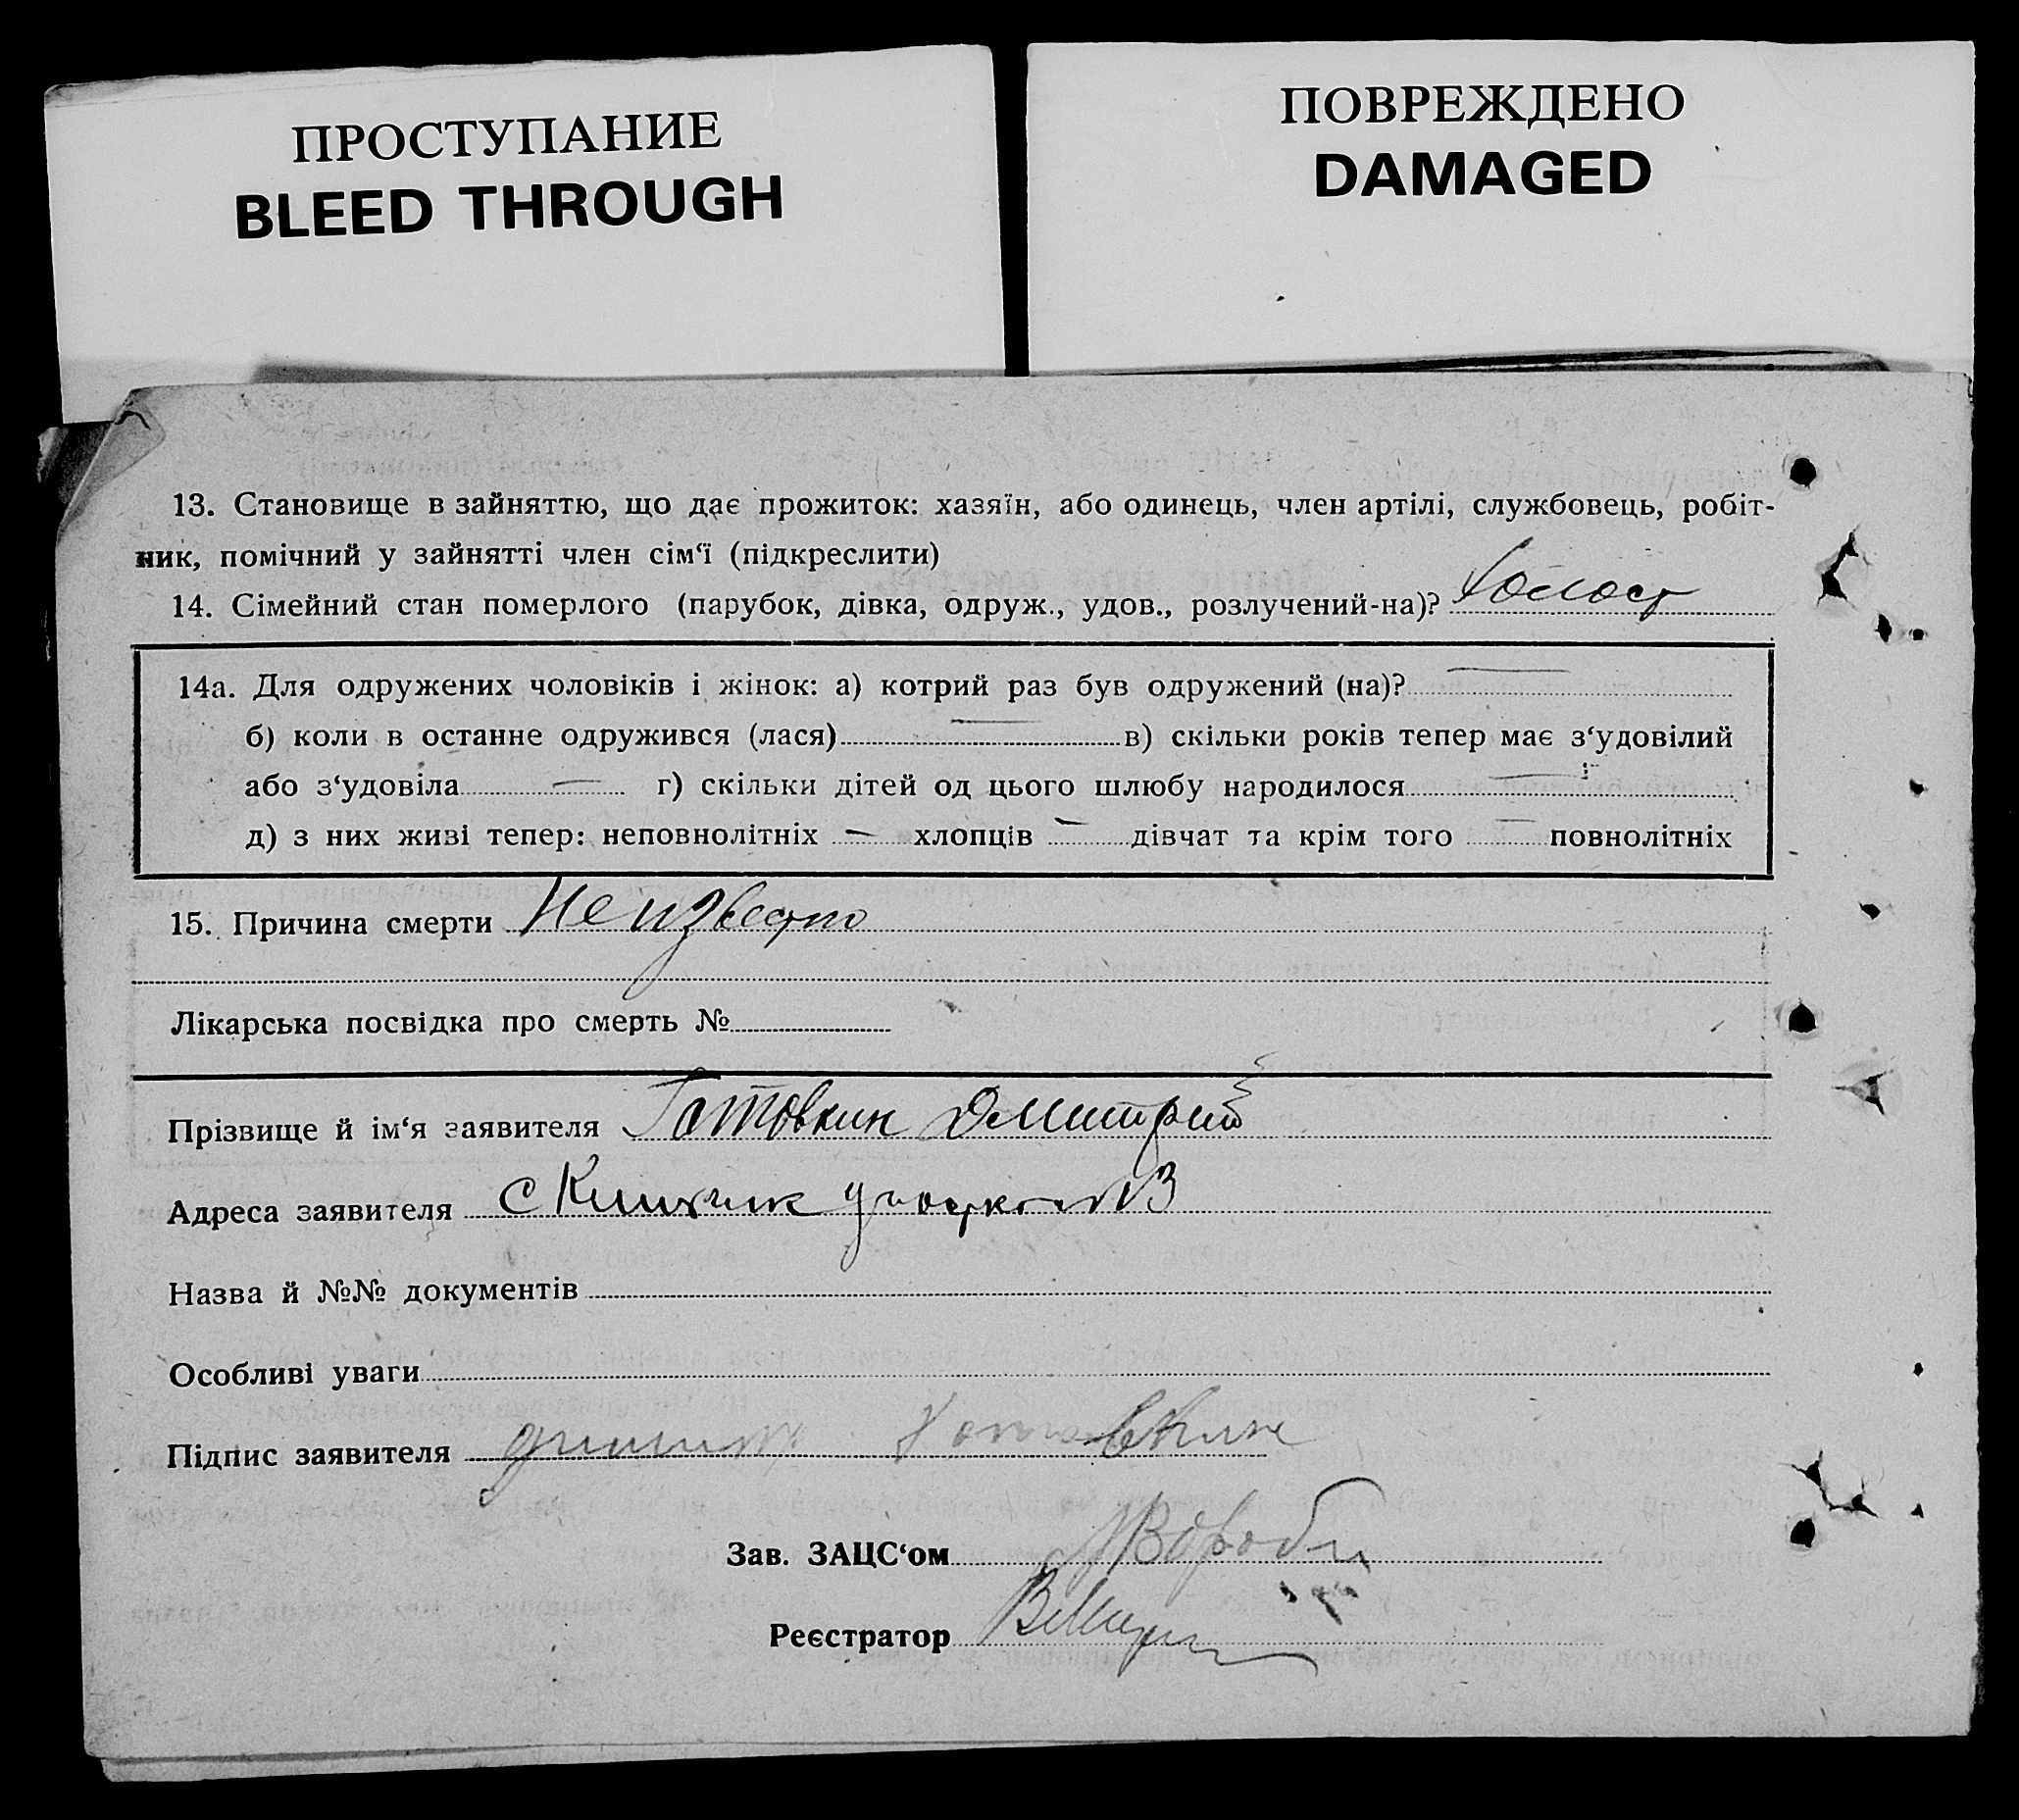 ПРОСТУПАНИЕ
BLEED THROUGH
ПОВРЕЖДЕНО
DAMAGED
13. Становище в зайняттю, що дає прожиток: хазяїн, або одинець, член артілі, службовець, робіт-
ник, помічний у зайнятті член сім‘ї (підкреслити)
14. Сімейний стан померлого (парубок, дівка, одруж., удов., розлучений-на)? Холост
14а. Для одружених чоловіків і жінок: а) котрий раз був одружений (на)? —
б) коли в останнє одружився (лася) — в) скільки років тепер має з‘удовілий
або з‘удовіла — г) скільки дітей од цього шлюбу народилося —
д) з них живі тепер: неповнолітніх — хлопців — дівчат та крім того — повнолітніх
15. Причина смерти Неизвестно
Лікарська посвідка про смерть №
Прізвище й ім‘я заявителя Готовкин Дмитрий
Адреса заявителя с
Назва й №№ документів
Особливі уваги
Підпис заявителя Готовкин
Зав. ЗАЦС‘ом
Реєстратор